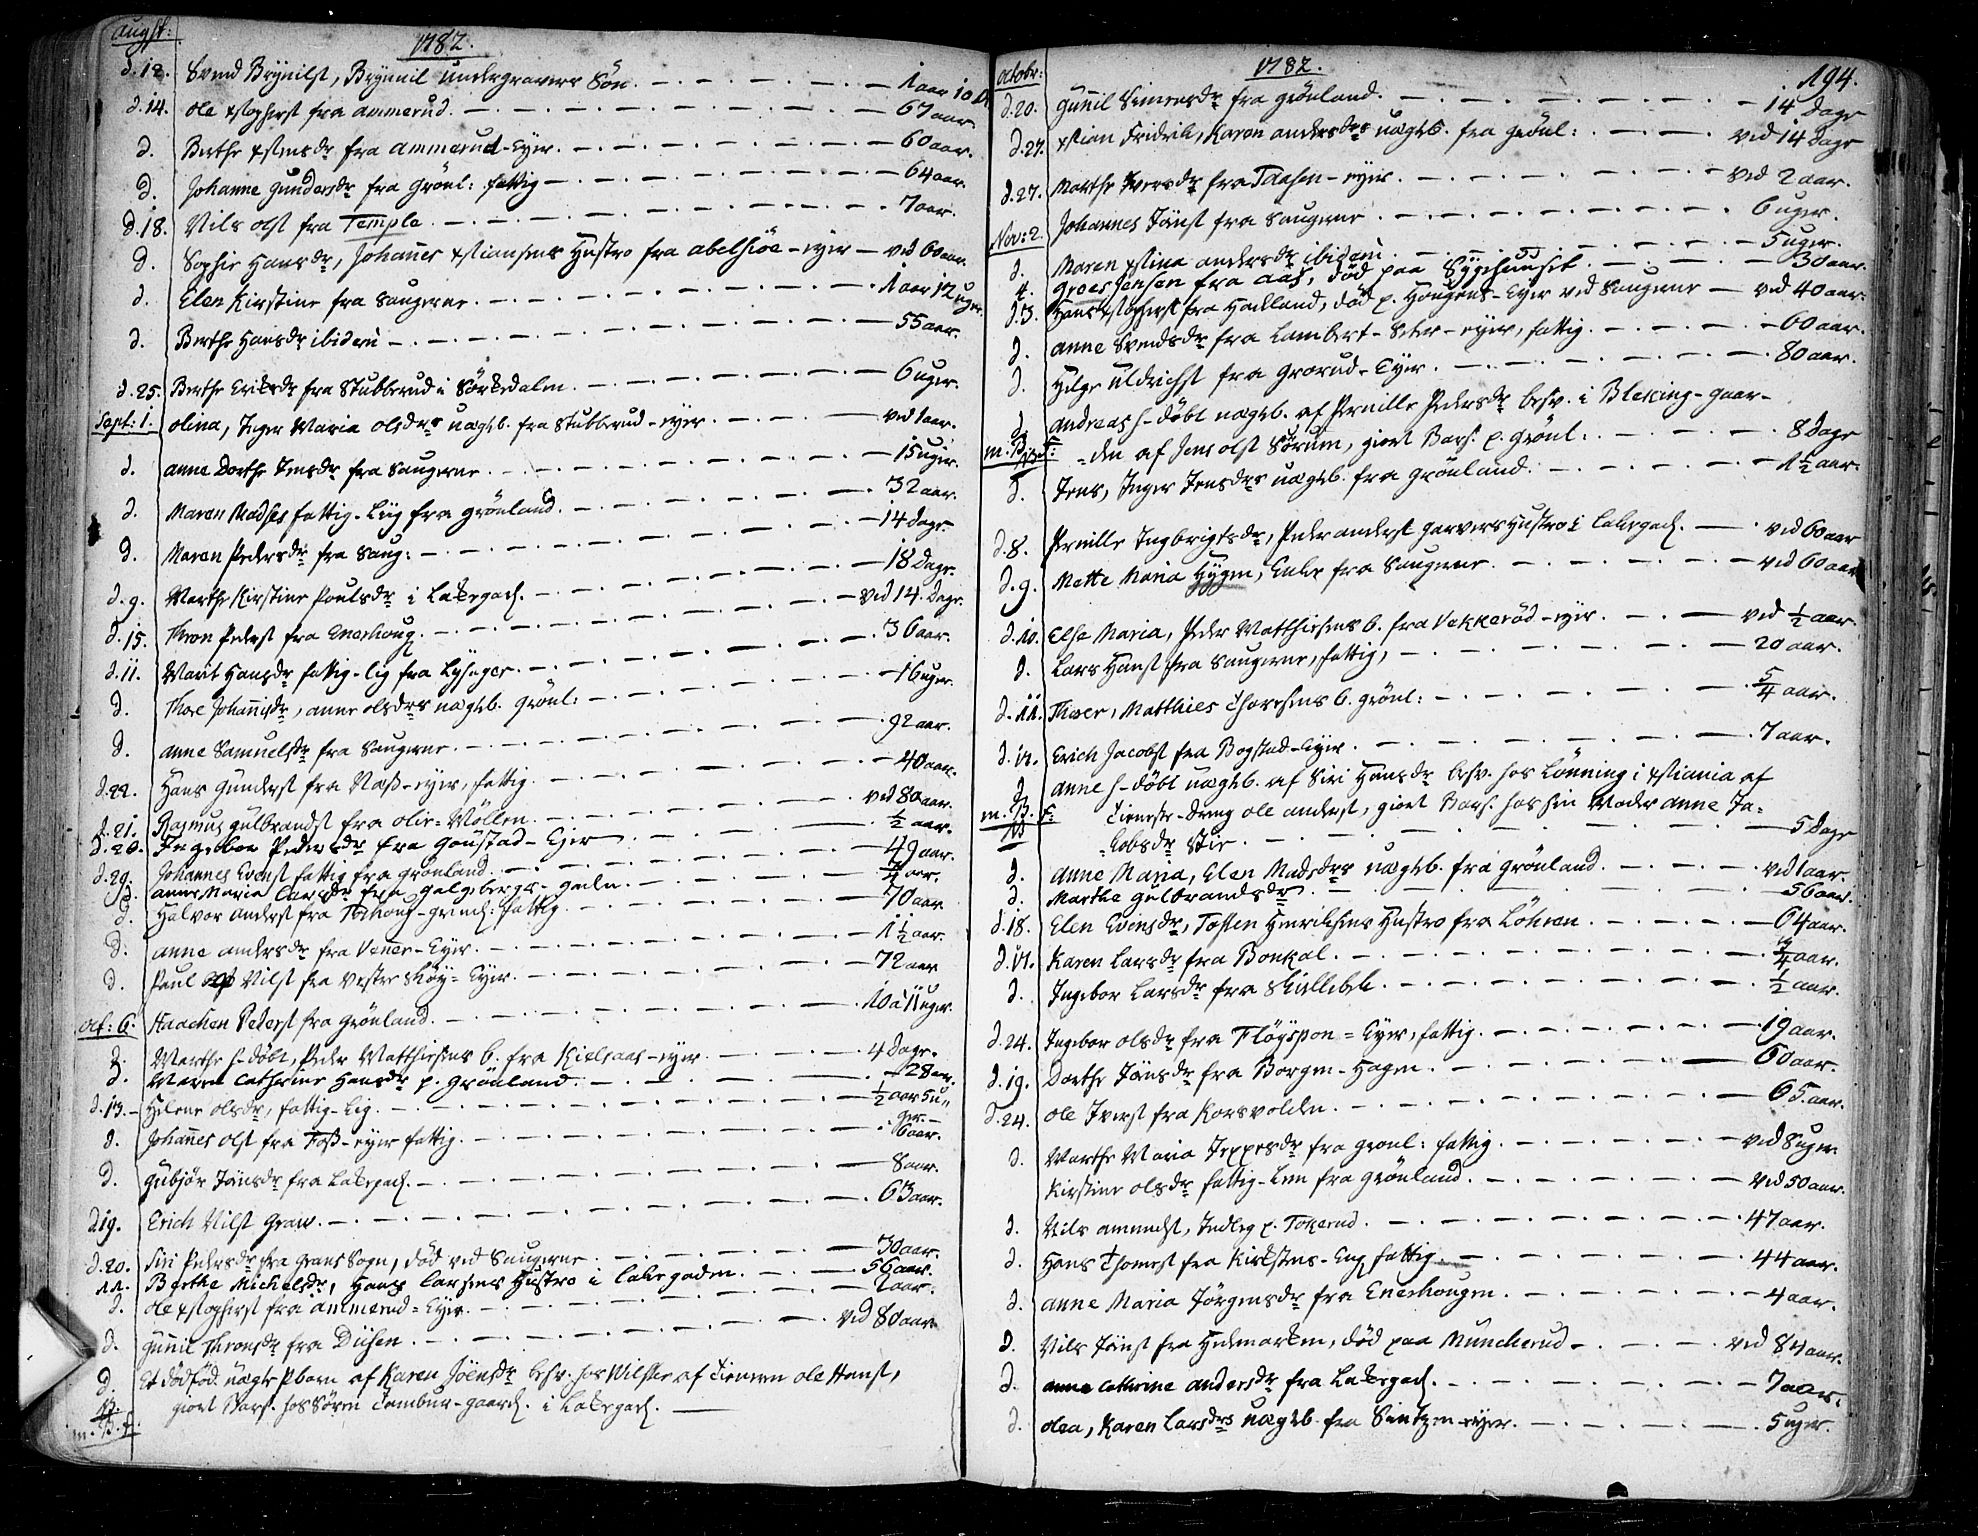 augst:
1782.
d. 12. Svend Brynilst, Brynnil Undergravers Søn 1 aar 10
d. 14. ole xstophst fra ammerud. 67 aar.
d. Berthe xstensdr fra Ammerud-Eyer. 60 aar.
d. Johanne Gundersdr fra Grönl: fattig 64 aar.
d. 18. Nils olst fra Temple 7 aar.
d. Sophie Hansdr, Johannes xstiansens Hustro fra abelsiöe-eyer ved 60 aar.
d. Elen Kirstine fra Saugerne 1 aar 12 uger.
d. Berthe Hansdr ibidem 55 aar.
d. 25. Berthe Eriksdr fra Stubberud i Sörkedalen 6 uger.
Sept: 1. olina, Inger Maria olsdrs uægteb. fra Stubberud-eyer ved 1 aar.
d. anne Dorthe Jensdr fra Saugerne 15 uger.
d. Maren Madses fattig-Liig fra Grönland 32 aar.
d. Maren Pedersdr fra Saug: 14 dage
d. 9. Marthe Kirstine Poulsdr i Lakegad. 18 dage.
d. 15. Thron Pederst fra Enerhoug. ved 14. Dage.
d. 11. Marit Hansdr fattig-lig fra Lysager. 36 aar.
d. Thore Johannisdr, anne olsdrs uægteb. Grönl: 16 uger.
d. anne Samuelsdr fra Saugerne. 92 aar.
d. 22. Hans Gunderst fra Næss-eyer, fattig 40 aar.
d. 21. Rasmus Gulbrandst fra olie-Möllen. ved 80 aar.
d. 20. Ingebor Pedersdr fra Goustad-Eyer ½ aar.
d. 29. Johannes Evenst fattig fra Grönland 49 aar.
d. anne Maria Larsdr fra Galgebergs-gaden ¾ aar.
d. Halvor anderst fra fattig 70 aar
d. anne andersdr fra Venner-Eyer 1½ aar.
d. Paul Nilst fra Vestre Skøy-Eyer. 72 aar
oct: 6. Haachen Pederst fra Grönland. 10 a 11 uger.
d. Marthe h-döbt, Peder Matthiesens b. fra Kielsaas-eyer 4 Dage.
d. Maren Cathrine Hansdr p. Grönland. 28 aar.
d. 13. Helene olsdr, fattig-Lig. ½ aar 5 u-
ger.
d. Johannes olst fra Foss-eyer fattig. 6 aar.
d. Gubjør Jönsdr fra Lakegad. 8 aar.
d 19. Erich Nilst Graw. 63 aar.
d. 20. Siri Pedersdr fra Grans Sogn, död ved Saugerne 30 aar.
22. Berthe Michelsdr, Hans Larsens Hustro i Lakegaden. 56 aar.
d. ole xstopherst fra ammerud-Eyer. 2 aar.
d. Gunnil Thronsdr fra Diisen ved 80 aar
d. Et dödföd uægte Pbarn af Karen Jöensdr besv. hos Wilster af Tieneren ole Hanst,
m. B. f. giort Bars. hos Sören Tambur-gaard. i Lakegad.
octobr:
1782.
194.
d. 20. Gunil Simensdr fra Grönland. 14 Dage
d. 27. xstian Fridrik, Karen andersdrs uægteb. fra Grönl: ved 14 Dage
d. 27. Marthe Iversdr fra Taasen-eyer. ved 2 aar.
Nov: 2. Johannes Jönst fra Saugerne 6 uger.
d. Maren xstina andersdr ibidem 5 uger.
4. Groes Jensen fra Aas, död paa Sygehuuset 30 aar.
d. 3. Hans xstopherst fra Hadeland, död p. Hougens-Eyer ved Saugerne ved 40 aar.
d. anne Svendsdr fra Lambert-Seter-eyer, fattig. 60 aar.
d. Helge Uldrichst fra Grorud-Eyer. 80 aar.
d. andreas h-döbt uægteb. af Pernille Pedersdr besv. i Bleking-gaar-
m. B. f: -den af Jens olst Sörum, giort Bars. p. Grönl: 8 Dage
d. Jens, Inger Jensdrs uægteb. fra Grönland. 1½ aar.
d. 8. Pernille Ingbrigtsdr, Peder anderst garvers Hustro i Lakegad. ved 60 aar
d. 9. Mette Maria Hygen, Enke fra Saugerne. ved 60 aar
d. 10. Else Maria, Peder Matthiesens b. fra Vekkeröd-eyer. ved ½ aar.
d. Lars Hanst fra Saugerne, fattig, 20 aar.
d. 11. Thoer, Matthies Thoresens b. Grönl: 5/4 aar.
d. 17. Erich Jacobst fra Bogstad-Eyer. 7 aar.
d. anne h-döbt uægteb. af Siri Hansdr besv. hos Lönning i xstiania af
m. B. f: Tieneste-Dreng ole anderst, giort Bars. hos sin Moder anne Ja-
-cobsdr Stie. 5 Dage
d. Anne Maria, Elen Madsdrs uægteb. fra Grönland. ved 1 aar.
d. Marthe Gulbrandsdr 56 aar.
d. 18. Elen Evensdr, Tosten Henriksens Hustro fra Löhren 64 aar.
d. 17. Karen Larsdr fra Bonkal. ¾ aar.
d. Ingebor Larsdr fra Skillebek ½ aar.
d. 24. Ingebor olsdr fra Flöyspon-Eyer, fattig. 19 aar.
d. 19. Dorthe Jönsdr fra Borgen-Hagen. 60 aar.
d. 24. ole Iverst fra Korsvolden. 65 aar.
d. Marthe Maria Jeppesdr fra Grönl: fattig. ved 8 uger
Kirstine olsdr fattig-Lem fra Grönland. ved 50 aar.
d. Nils amundst, Indleg p. Tokerud. 47 aar.
d. Hans Thomest fra Kirkstens-Eng fattig 44 aar.
d. anne Maria Jörgensdr fra Enerhougen. 4 aar.
d. Nils Jönst fra Hedemarken, död paa Muncherud ved 84 aar.
d. anne Cathrine andersdr fra Lakegad. 7 aar.
d. olea, Karen Larsdrs uægteb. fra Sintzen-eyer. 5 uger.